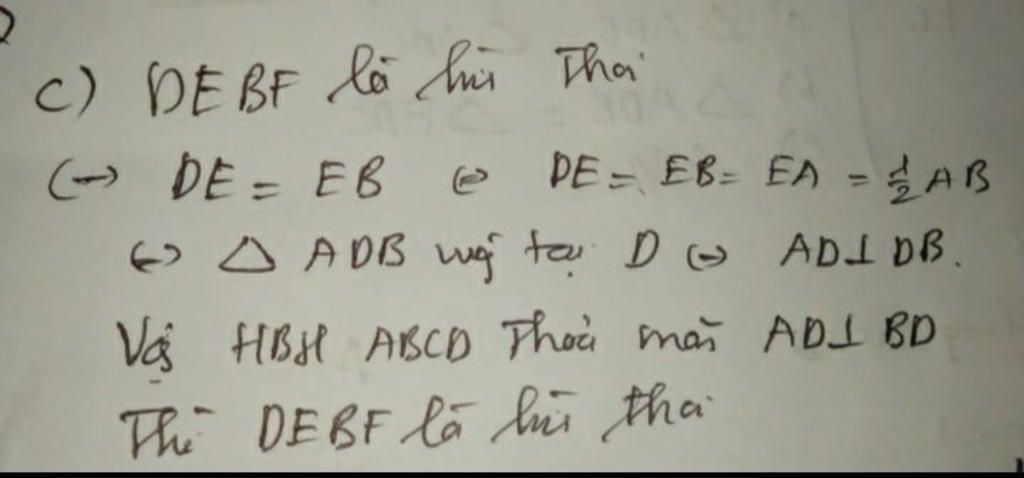 c) DEBF là hình Thoi
↔ DE = EB ↔ DE = EB = EA = 1/2 AB
↔ △ ADB vuông tại D ↔ AD⊥DB.
Vậy HBH ABCD Thoả mãn AD⊥BD
Thì DEBF là hình thoi